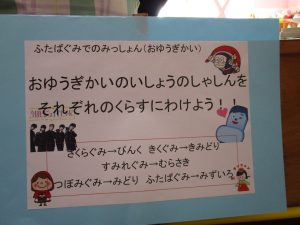 ふたばぐみでのみっしょん(おゆうぎかい)
おゆうぎかいのいしょうのしゃしんを
それぞれのくらすにわけよう!!
さくらぐみ→ぴんく きくぐみ→きみどり
すみれぐみ→むらさき
つぼみぐみ→みどり ふたばぐみ→みずいろ